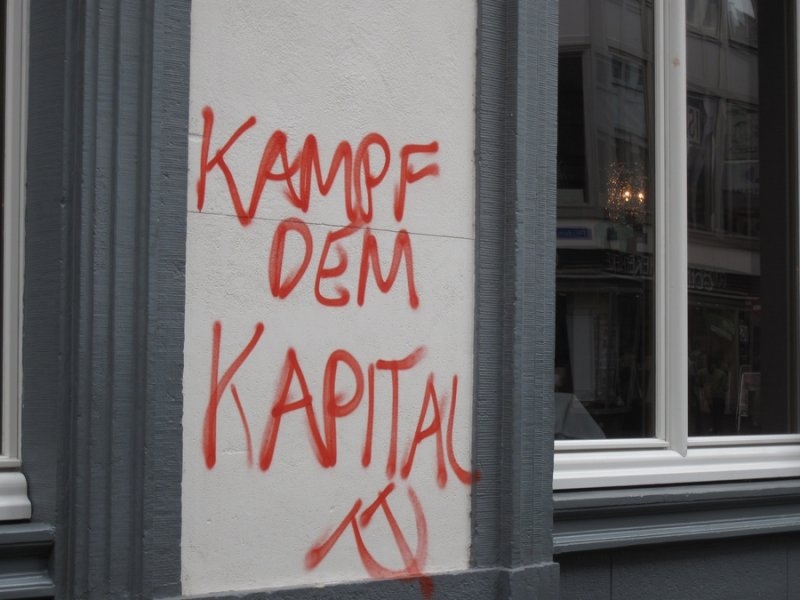 KAMPF
DEM
KAPITAL